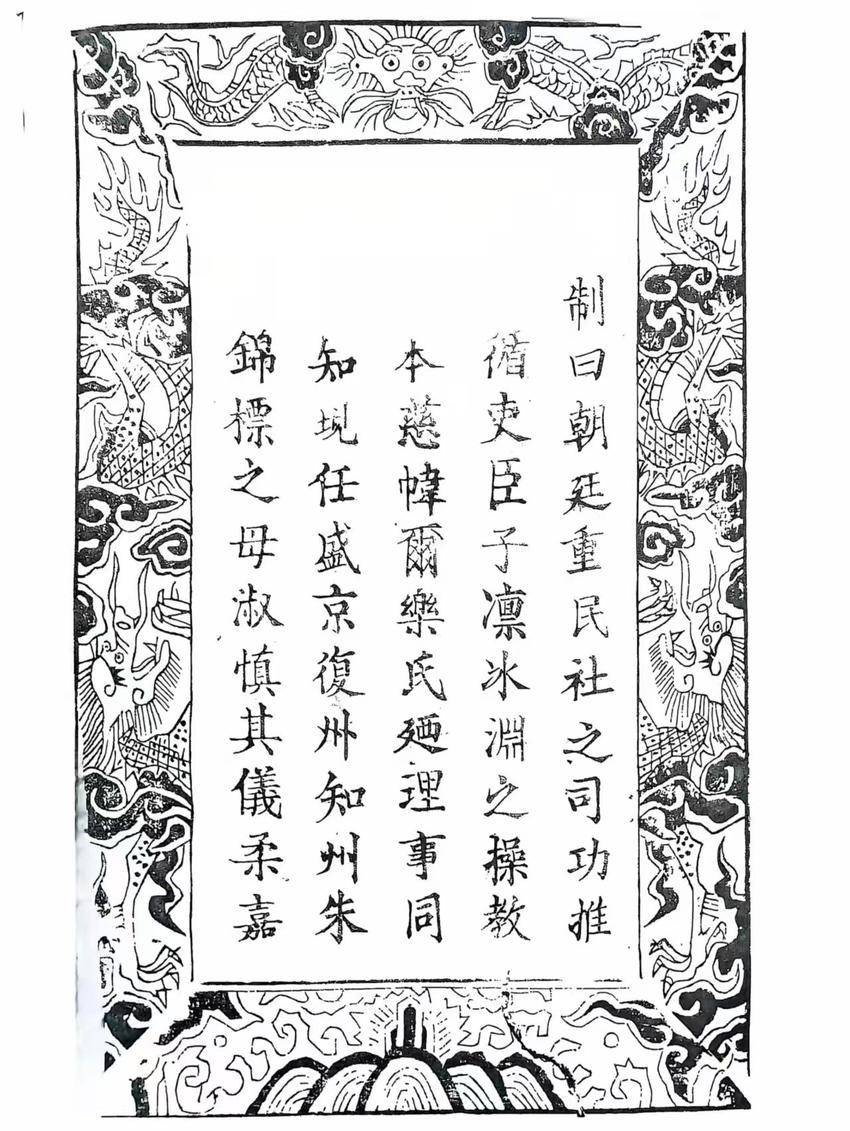 制曰朝廷重民社之司功推
循吏臣子凛氷淵之操教
本慈幃爾樂氏廼理事同
知現任盛京復州知州朱
錦標之母淑慎其儀柔嘉